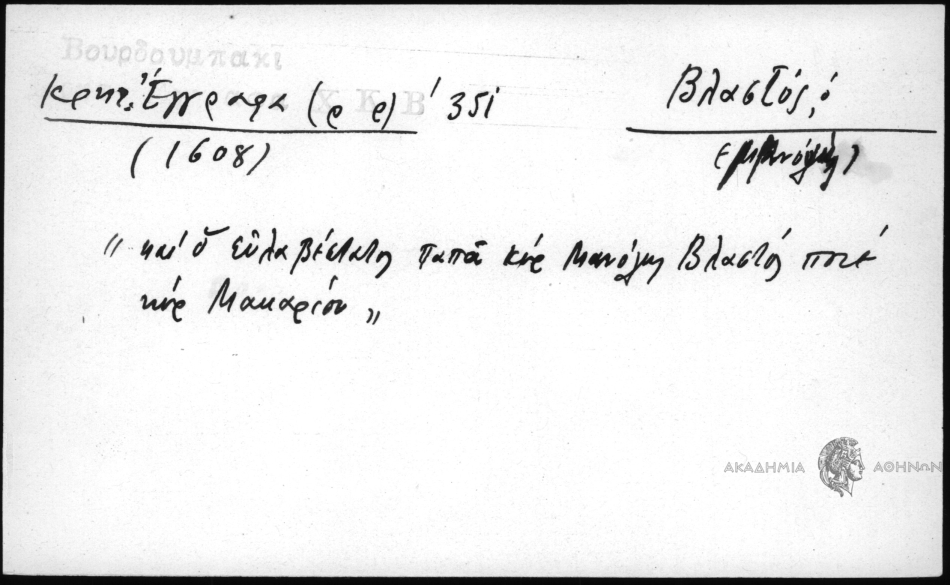 Βουρδουμπακι
Κρητ. Έγγραφα (ρ ρ)' 351
Χ Κ Β
Βλαστός, ὁ
(1608)
„ καί ὁ εὐλαβέστατος παπᾶ κύρ Μανόλης Βλαστός ποτέ
κύρ Μακαρίου „
ΑΚΑΔΗΜΙΑ ΑΘΗΝΩΝ